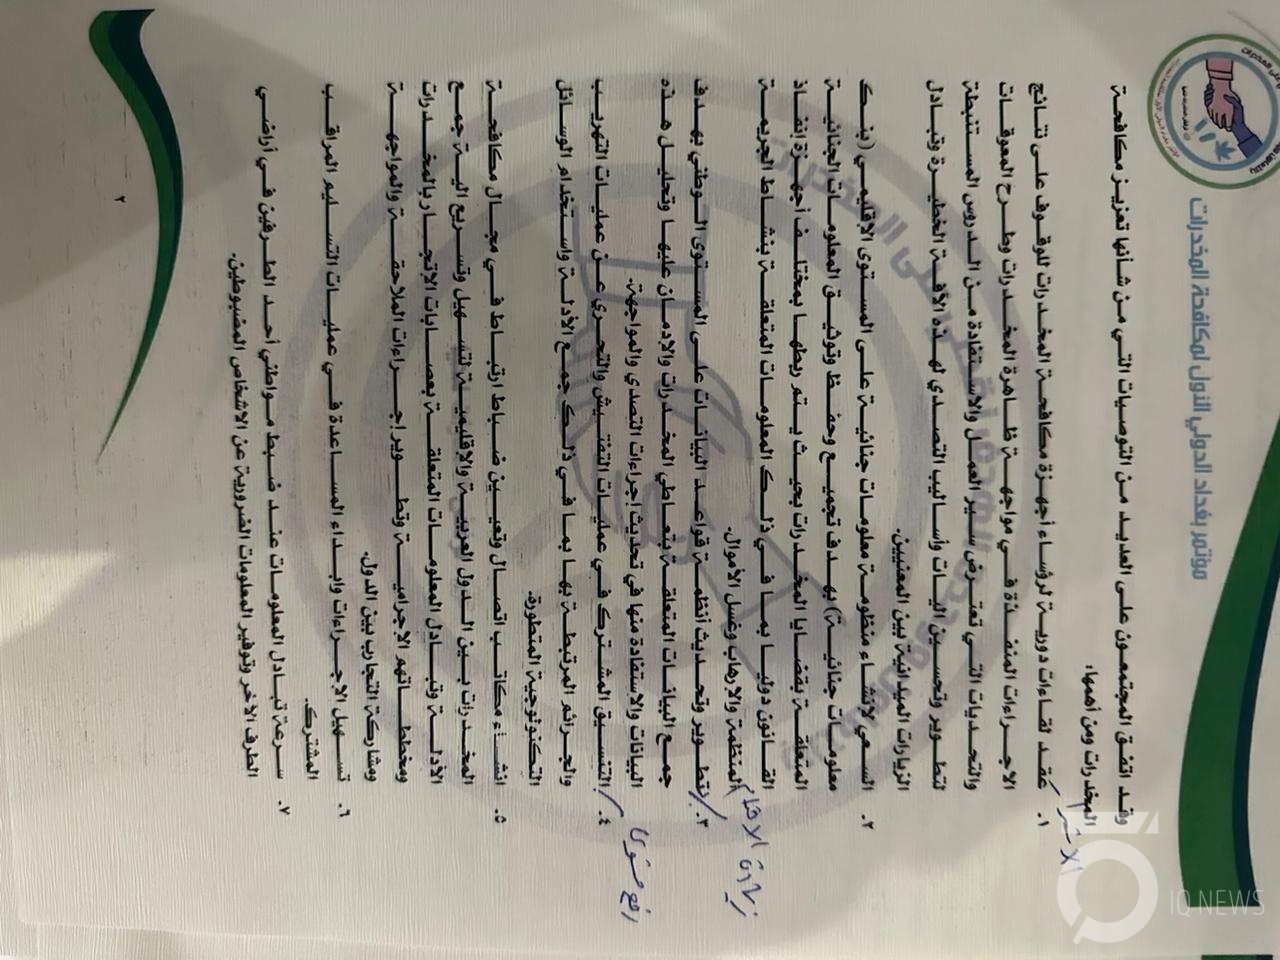 مؤتمر بغداد الدولي الاول لمكافحة المخدرات
وقد اتفق المجتمعون على العديد من التوصيات التي من شأنها تعزيز مكافحة
المخدرات ومن أهمها:
١. عقد لقاءات دورية لرؤساء أجهزة مكافحة المخدرات للوقوف على نتائج
الاجراءات المنفذة في مواجهة ظاهرة المخدرات وطرح المعوقات
والتحديات التي تعترض سير العمل والاستفادة من الدروس المستنبطة
لتطوير وتحسين اليات وأساليب التصدي لهذه الآفة الخطيرة وتبادل
الزيارات الميدانية بين المعنيين.
٢. السعي لانشاء منظومة معلومات جنائية على المستوى الإقليمي (بنك
معلومات جنائية) بهدف تجميع وحفظ وتوثيق المعلومات الجنائية
المتعلقة بقضايا المخدرات بحيث يتم ربطها بمختلف أجهزة إنفاذ
القانون دوليا بما في ذلك المعلومات المتعلقة بنشاط الجريمة
المنظمة والإرهاب وغسل الأموال.
زيادة الاهتمام
٣. تطوير وتحديث أنظمة قواعد البيانات على المستوى الوطني بهدف
جمع البيانات المتعلقة بتعاطي المخدرات والإدمان عليها وتحليل هذه
البيانات والاستفادة منها في تحديث إجراءات التصدي والمواجهة.
رفع مستوى
٤. التنسيق المشترك في عمليات التفتيش والتحري عن عمليات التهريب
والجرائم المرتبطة بها بما في ذلك جمع الأدلة واستخدام الوسائل
التكنولوجية المتطورة.
٥. انشاء مكاتب اتصال وتعيين ضباط ارتباط في مجال مكافحة
المخدرات بين الدول العربية والاقليمية لتسهيل وتسريع الية جمع
الأدلة وتبادل المعلومات المتعلقة بعصابات الإتجار بالمخدرات
ومخططاتهم الاجرامية وتطوير إجراءات الملاحقة والمواجهة
ومشاركة التجارب بين الدول.
٦. تسهيل الاجراءات وابداء المساعدة في عمليات التسليم المراقب
المشترك.
٧. سرعة تبادل المعلومات عند ضبط مواطني أحد الطرفين في أراضي
الطرف الاخر وتوفير المعلومات الضرورية عن الاشخاص المضبوطين.
٢
IQ NEWS